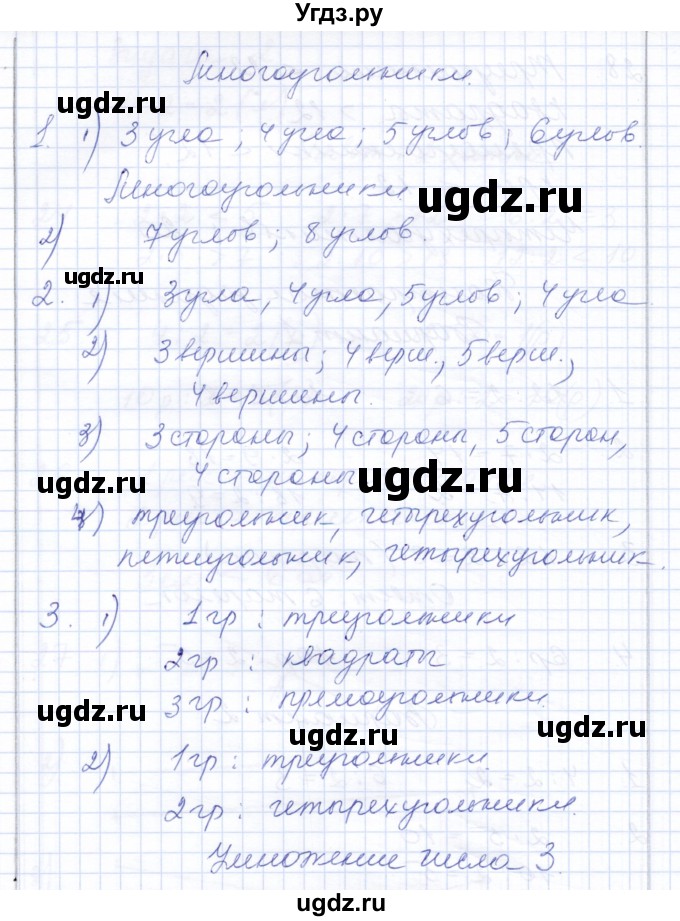 Угдз.ру
Многоугольники.
ugdz.ru
1. 1) 3 угла; 4 угла; 5 углов; 6 углов.
Многоугольники
ugdz.ru
2) 7 углов; 8 углов.
ugdz.ru
2. 1) 3 угла, 4 угла, 5 углов; 4 угла.
2) 3 вершины; 4 верш., 5 верш.,
4 вершины.
3) 3 стороны; 4 стороны, 5 сторон,
ugdz.ru 4 стороны ugdz.ru
4) треугольник, четырехугольник,
пятиугольник, четырехугольник.
3. 1) 1 гр: треугольники
ugdz.ru
2 гр: квадраты
3 гр: прямоугольники.
ugdz.ru
ugdz.ru
ugdz.ru
2) 1 гр: треугольники.
2 гр: четырехугольники.
Умножение числа 3.
ugdz.ru
ugdz.ru